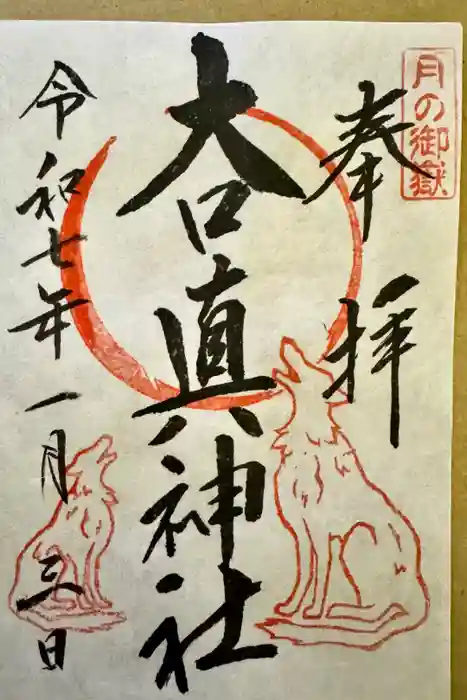 月の御嶽
奉拝
大口真神社
令和七年一月三日